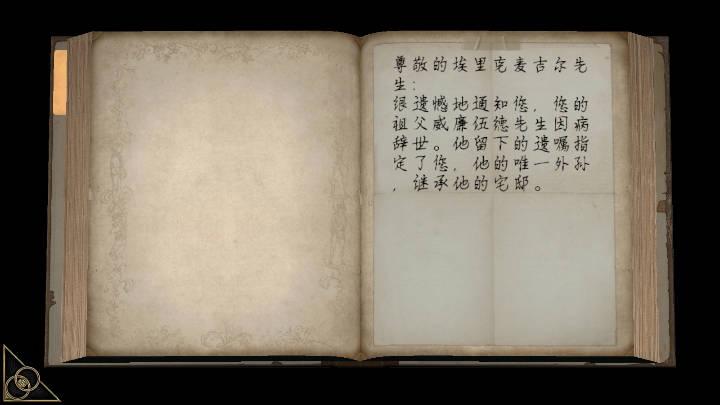 尊敬的埃里克麦吉尔先
生：
很遗憾地通知您，您的
祖父威廉伍德先生因病
辞世。他留下的遗嘱指
定了您，他的唯一外孙
，继承他的宅邸。